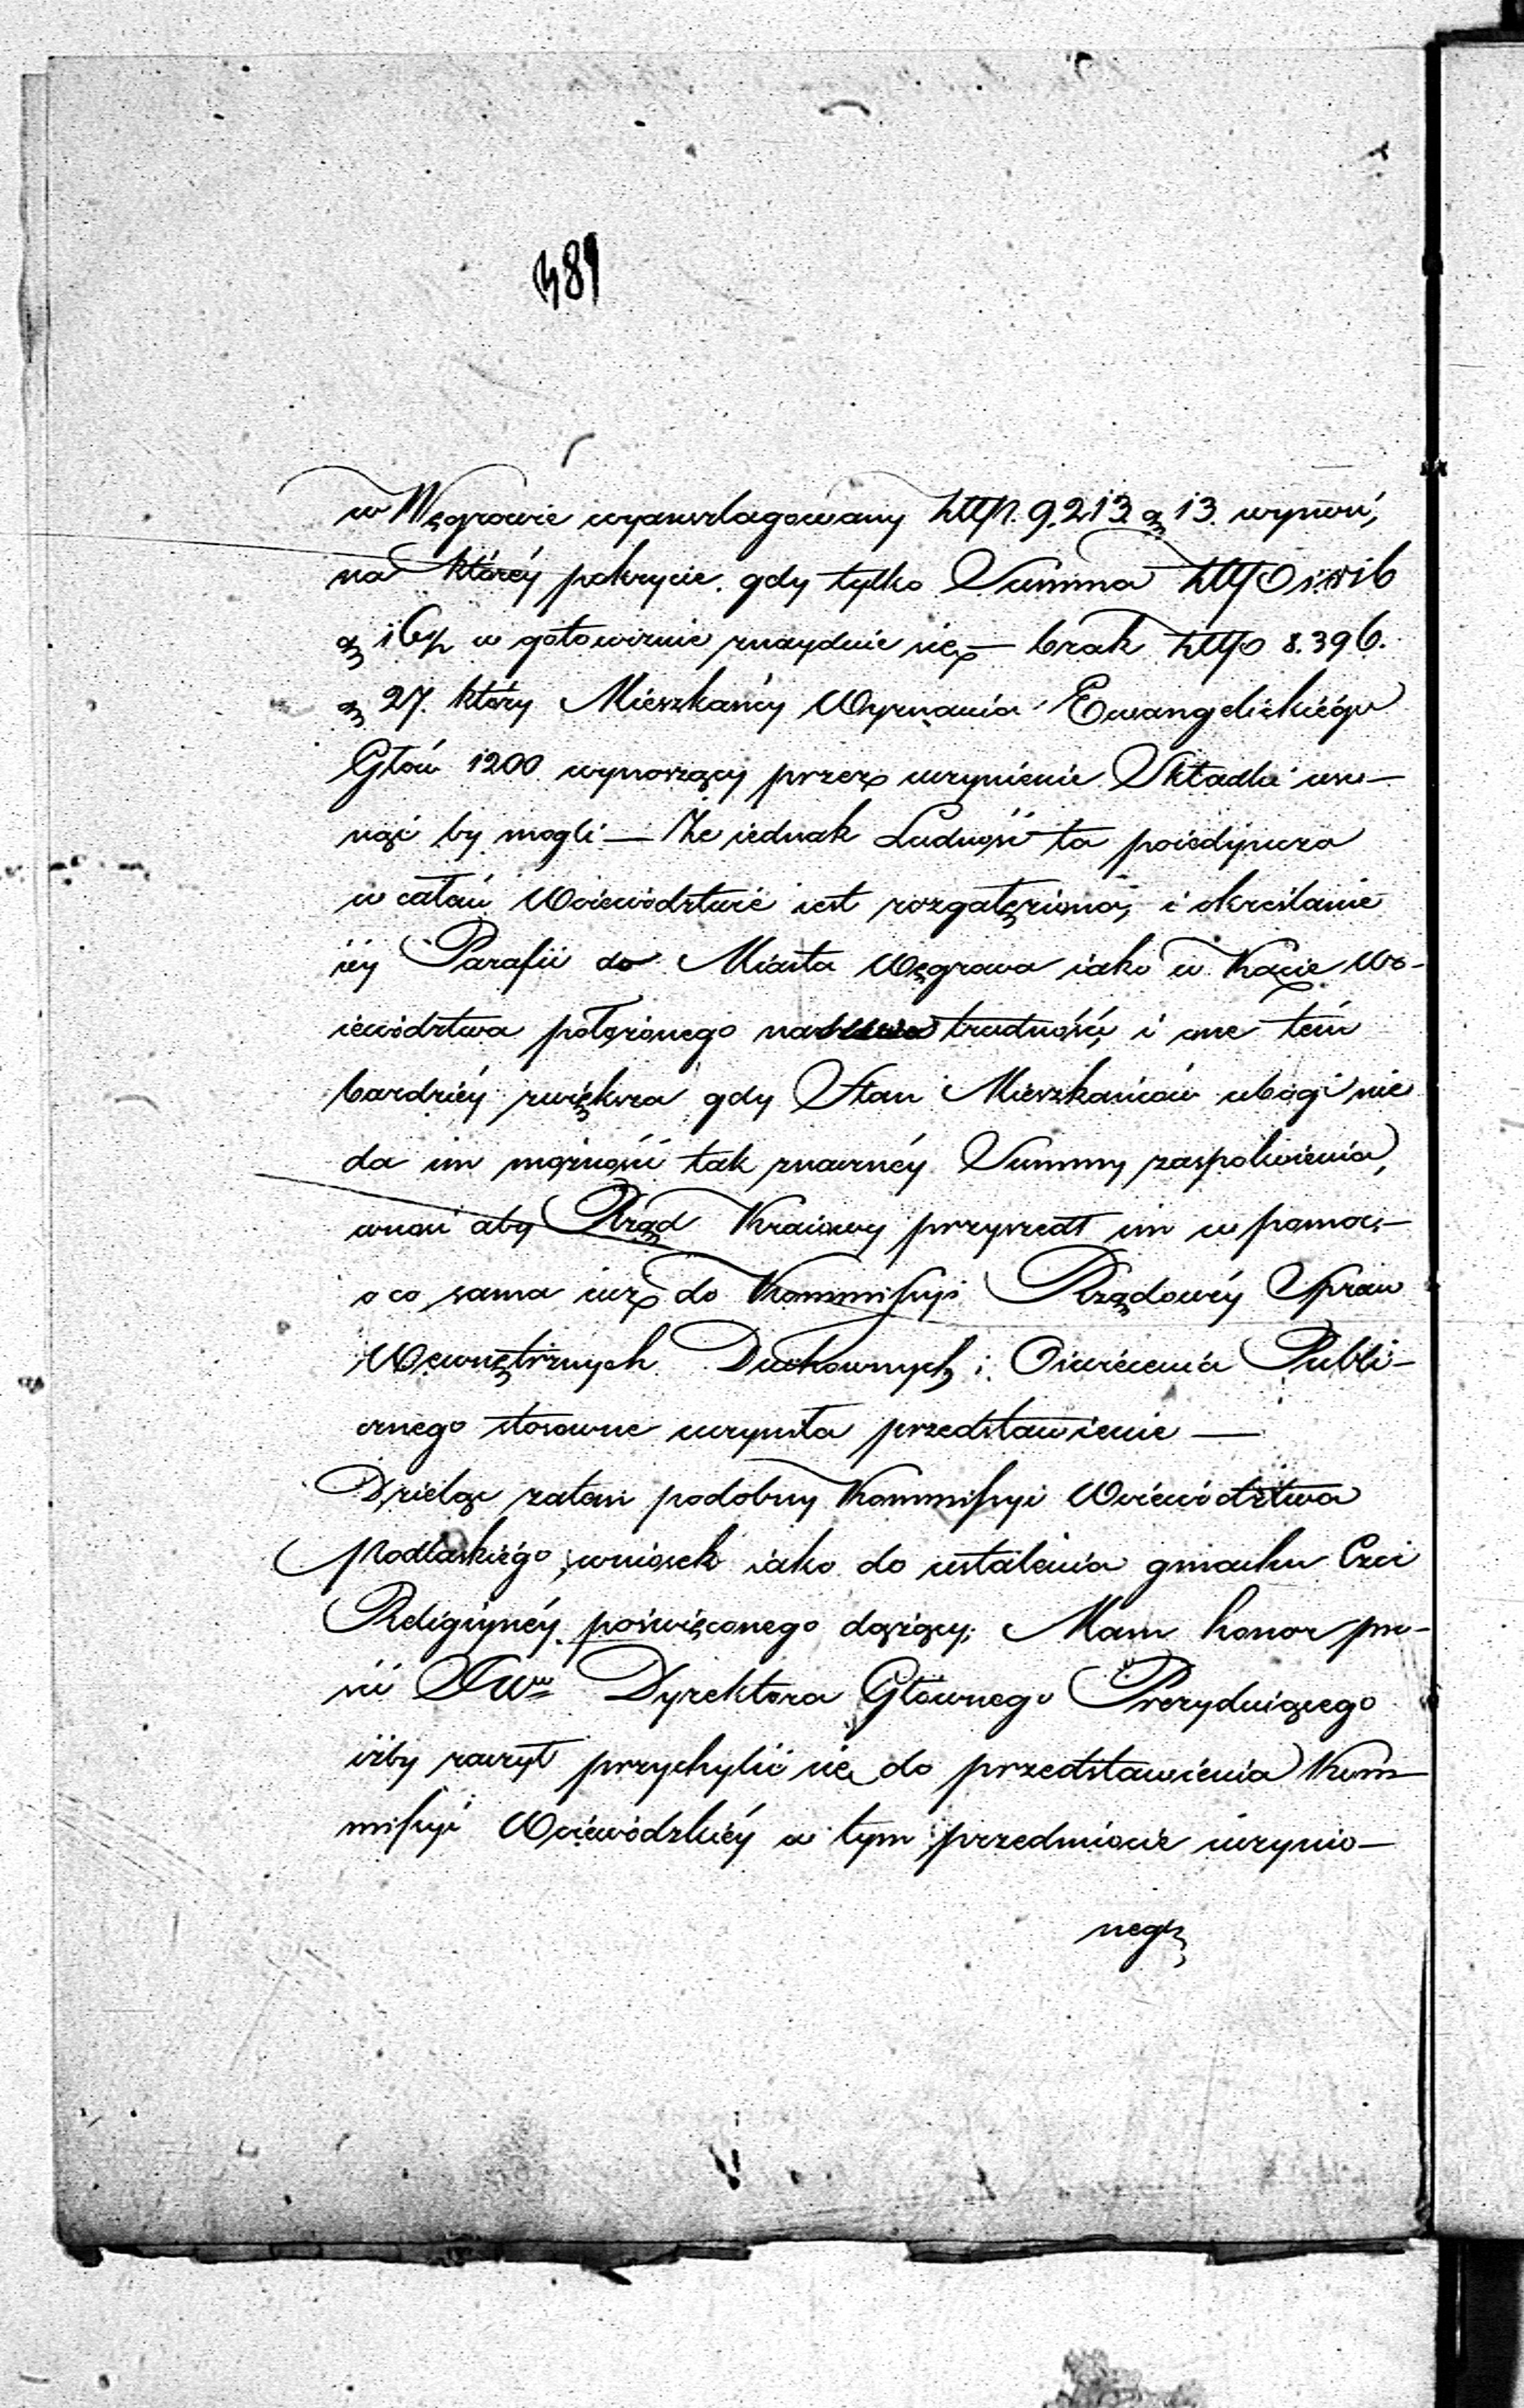 w Węgrowie wyanszlagowany złłp. 9.213 g 13. wynosi,
na któréy pokrycie, gdy tylko Summa złłp
g 16 w gotowiznie znayduie się — brak złłp 8.396.
g 27. który Mieszkańcy Wyznania Ewangelickiégo
Głów 1200 wynoszący przez uczynienie Składki usu-
nąć by mogli — Że iednak Ludność ta poiedynczo
w całém Woiewództwie iest rozgałęziona, i określanie
iéy Parafii do Miasta Węgrowa iako w Kącie Wo-
iewództwa położonego trudność, i one tém
bardziéy zwiększa gdy Stan Mieszkańców ubogi nie
da im możność tak znacznéy Summy zaspokoienia,
wnosi aby Rząd Kraiowy przyszedł im w pomoc,—
o co sama iuż do Kommissyi Rządowéy Spraw
Wewnętrznych Duchownych i Oświecenia Publi-
cznego stosowne uczyniła przedstawienie —
Dzieląc zatem podobny Kommissyi Woiewództwa
Podlaskiégo, wniosek iako do ustalenia gmachu Czci
Religiynéy poświęconego dążący; Mam honor pro-
sić JWo Dyrektora Głównego Prezyduiącego
iżby raczył przychylić się do przedstawienia Kom-
missyi Woiewódzkiéy w tym przedmiocie uczynio-
nego